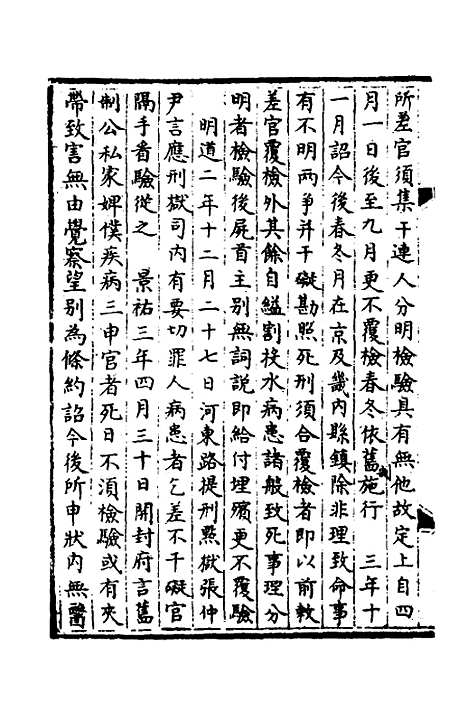 所差官須集干連人分明檢驗具有無他故定上自四
月一日後至九月更不覆檢春冬依舊施行　三年十
一月詔今後春冬月在京及畿內縣鎮除非理致命事
有不明兩爭并干礙勘照死刑須合覆檢者即以前敕
差官覆檢外其餘自縊割投水病患諸般致死事理分
明者檢驗後屍首主別無詞說即給付埋殯更不覆驗
明道二年十二月二十七日河東路提刑㸃獄張仲
尹言應刑獄司內有要切罪人病患者乞差不干礙官
隔手看驗從之　景祐三年四月三十日開封府言舊
制公私家婢僕疾病三申官者死日不須檢驗或有夾
帶致害無由覺察望別為條約詔今後所申狀內無醫